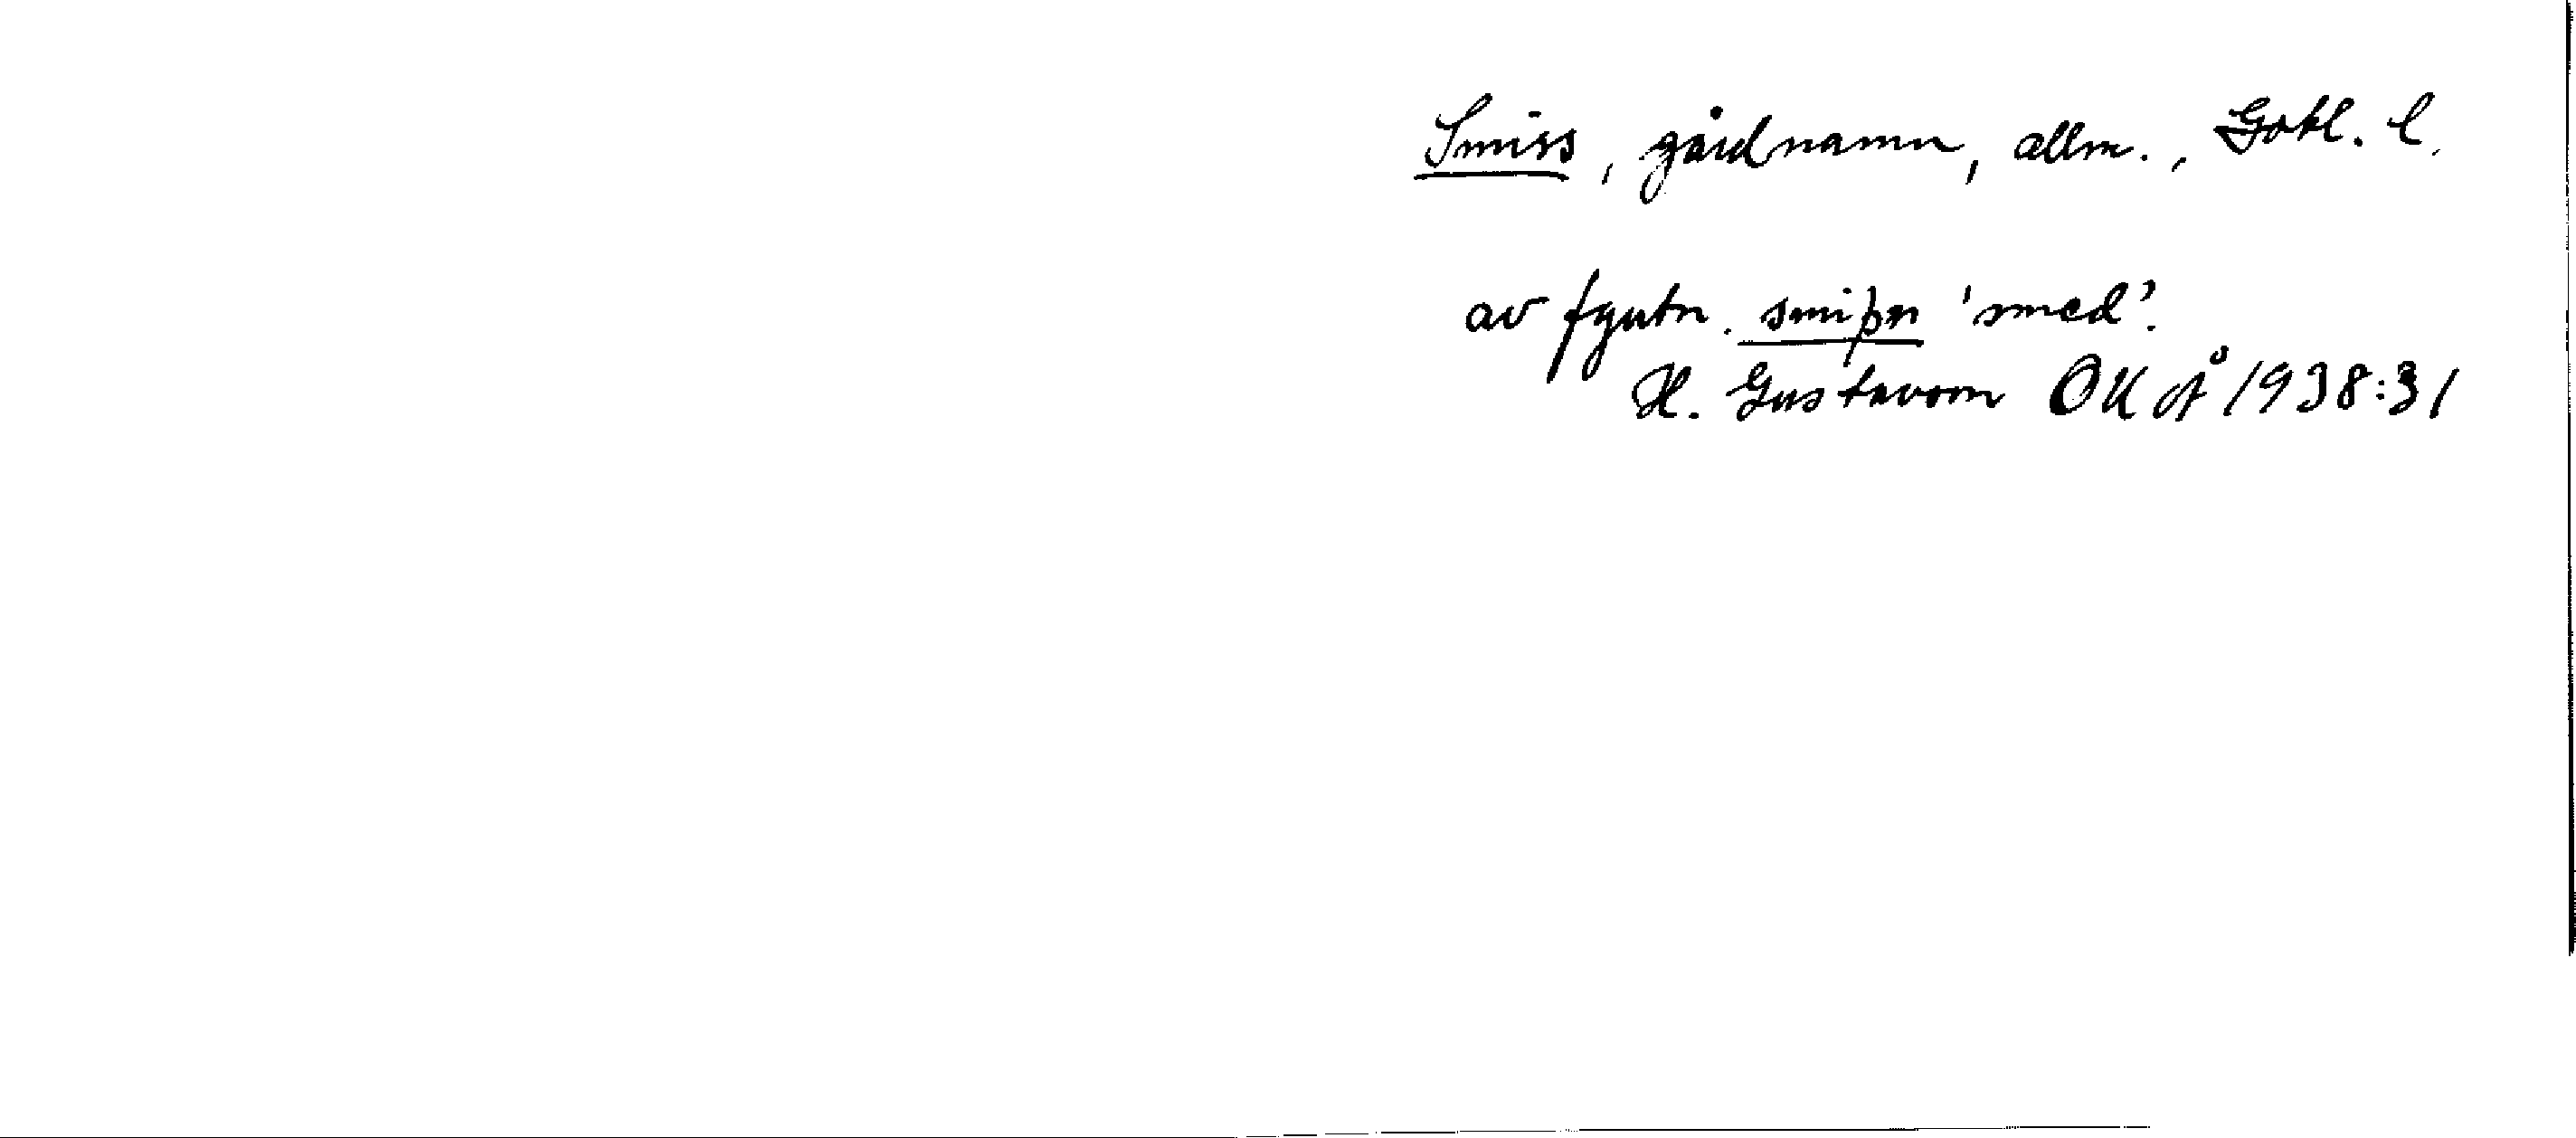 Smiss, gårdnamn, allm., Gotl. l.
av fgutn. smiþr 'smed'.
H. Gustavson OKÅ 1938:31